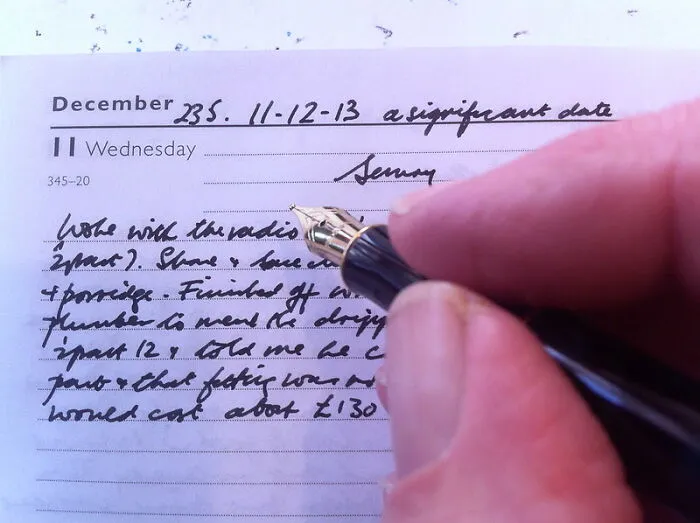 December 235. 11-12-13 a significant date
11 Wednesday
345–20
Woke with the radio
½past 7. Shave &
& porridge. Finished off
plumber to mend the
½past 12 & told me he
part & that fitting was
would cost about £130